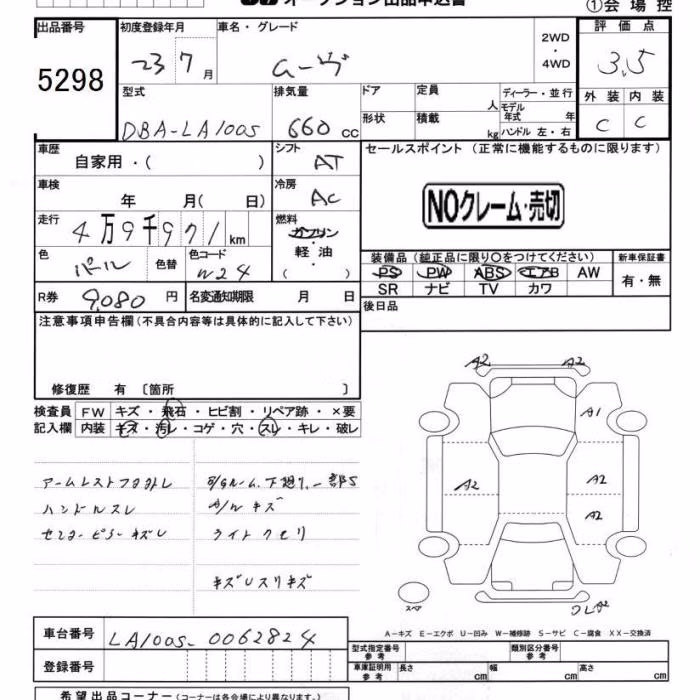 オークション出品申込書
①会場控
出品番号 初度登録年月 車名・グレード 2WD・4WD 評価点
5298 23 7月 ムーヴ 3.5
型式 排気量 ドア 定員 人 ディーラー・並行 外装 内装
DBA-LA100S 660cc 形状 積載 kg モデル年式 年 ハンドル 左・右 C C
車歴 自家用・( ) シフト AT セールスポイント (正常に機能するものに限ります)
車検 年 月( 日) 冷房 AC
NOクレーム・売切
走行 4万9千971km 燃料 ガソリン・軽油・( )
色 パール 色替 色コード W24
装備品 (純正品に限り○をつけてください) 新車保証書
PS PW ABS エアB AW 有・無
SR ナビ TV カワ
R券 9,080円 名変通知期限 月 日 後日品
注意事項申告欄(不具合内容等は具体的に記入して下さい)
修復歴 有 〔箇所 〕
検査員記入欄 FW キズ・飛石・ヒビ割・リペア跡・×要
内装 キズ・汚レ・コゲ・穴・スレ・キレ・破レ
ハンドルスレ
センターピラーキズU
A/W キズ
ライトクモリ
キズUスリキズ
A2 A2
A1
A2 A2
A2
スペア
A-キズ E-エクボ U-凹み W-補修跡 S-サビ C-腐食 XX-交換済
車台番号 LA100S-0062824
型式指定番号 参考 類別区分番号 参考
登録番号
車庫証明用 参考 長さ cm 幅 cm 高さ cm
希望出品コーナー(コーナーは各会場により異なります。)